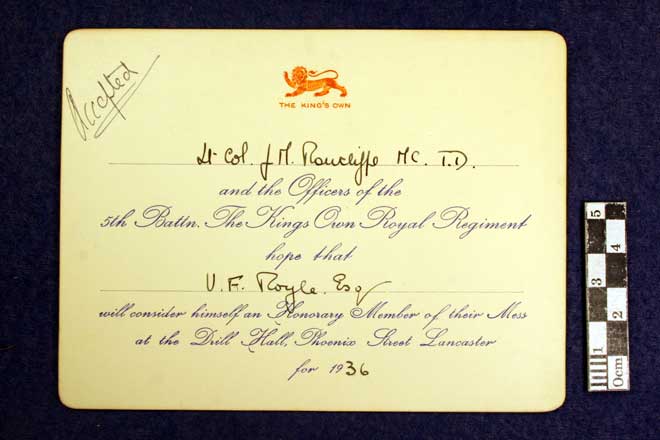 Accepted
THE KING'S OWN
Lt Col. J. M. Rawcliffe MC. T.D.
and the Officers of the
5th Battn. The Kings Own Royal Regiment
hope that
V. F. Royle. Esq
will consider himself an Honorary Member of their Mess
at the Drill Hall, Phoenix Street Lancaster
for 1936
5
4
3
2
1
0cm